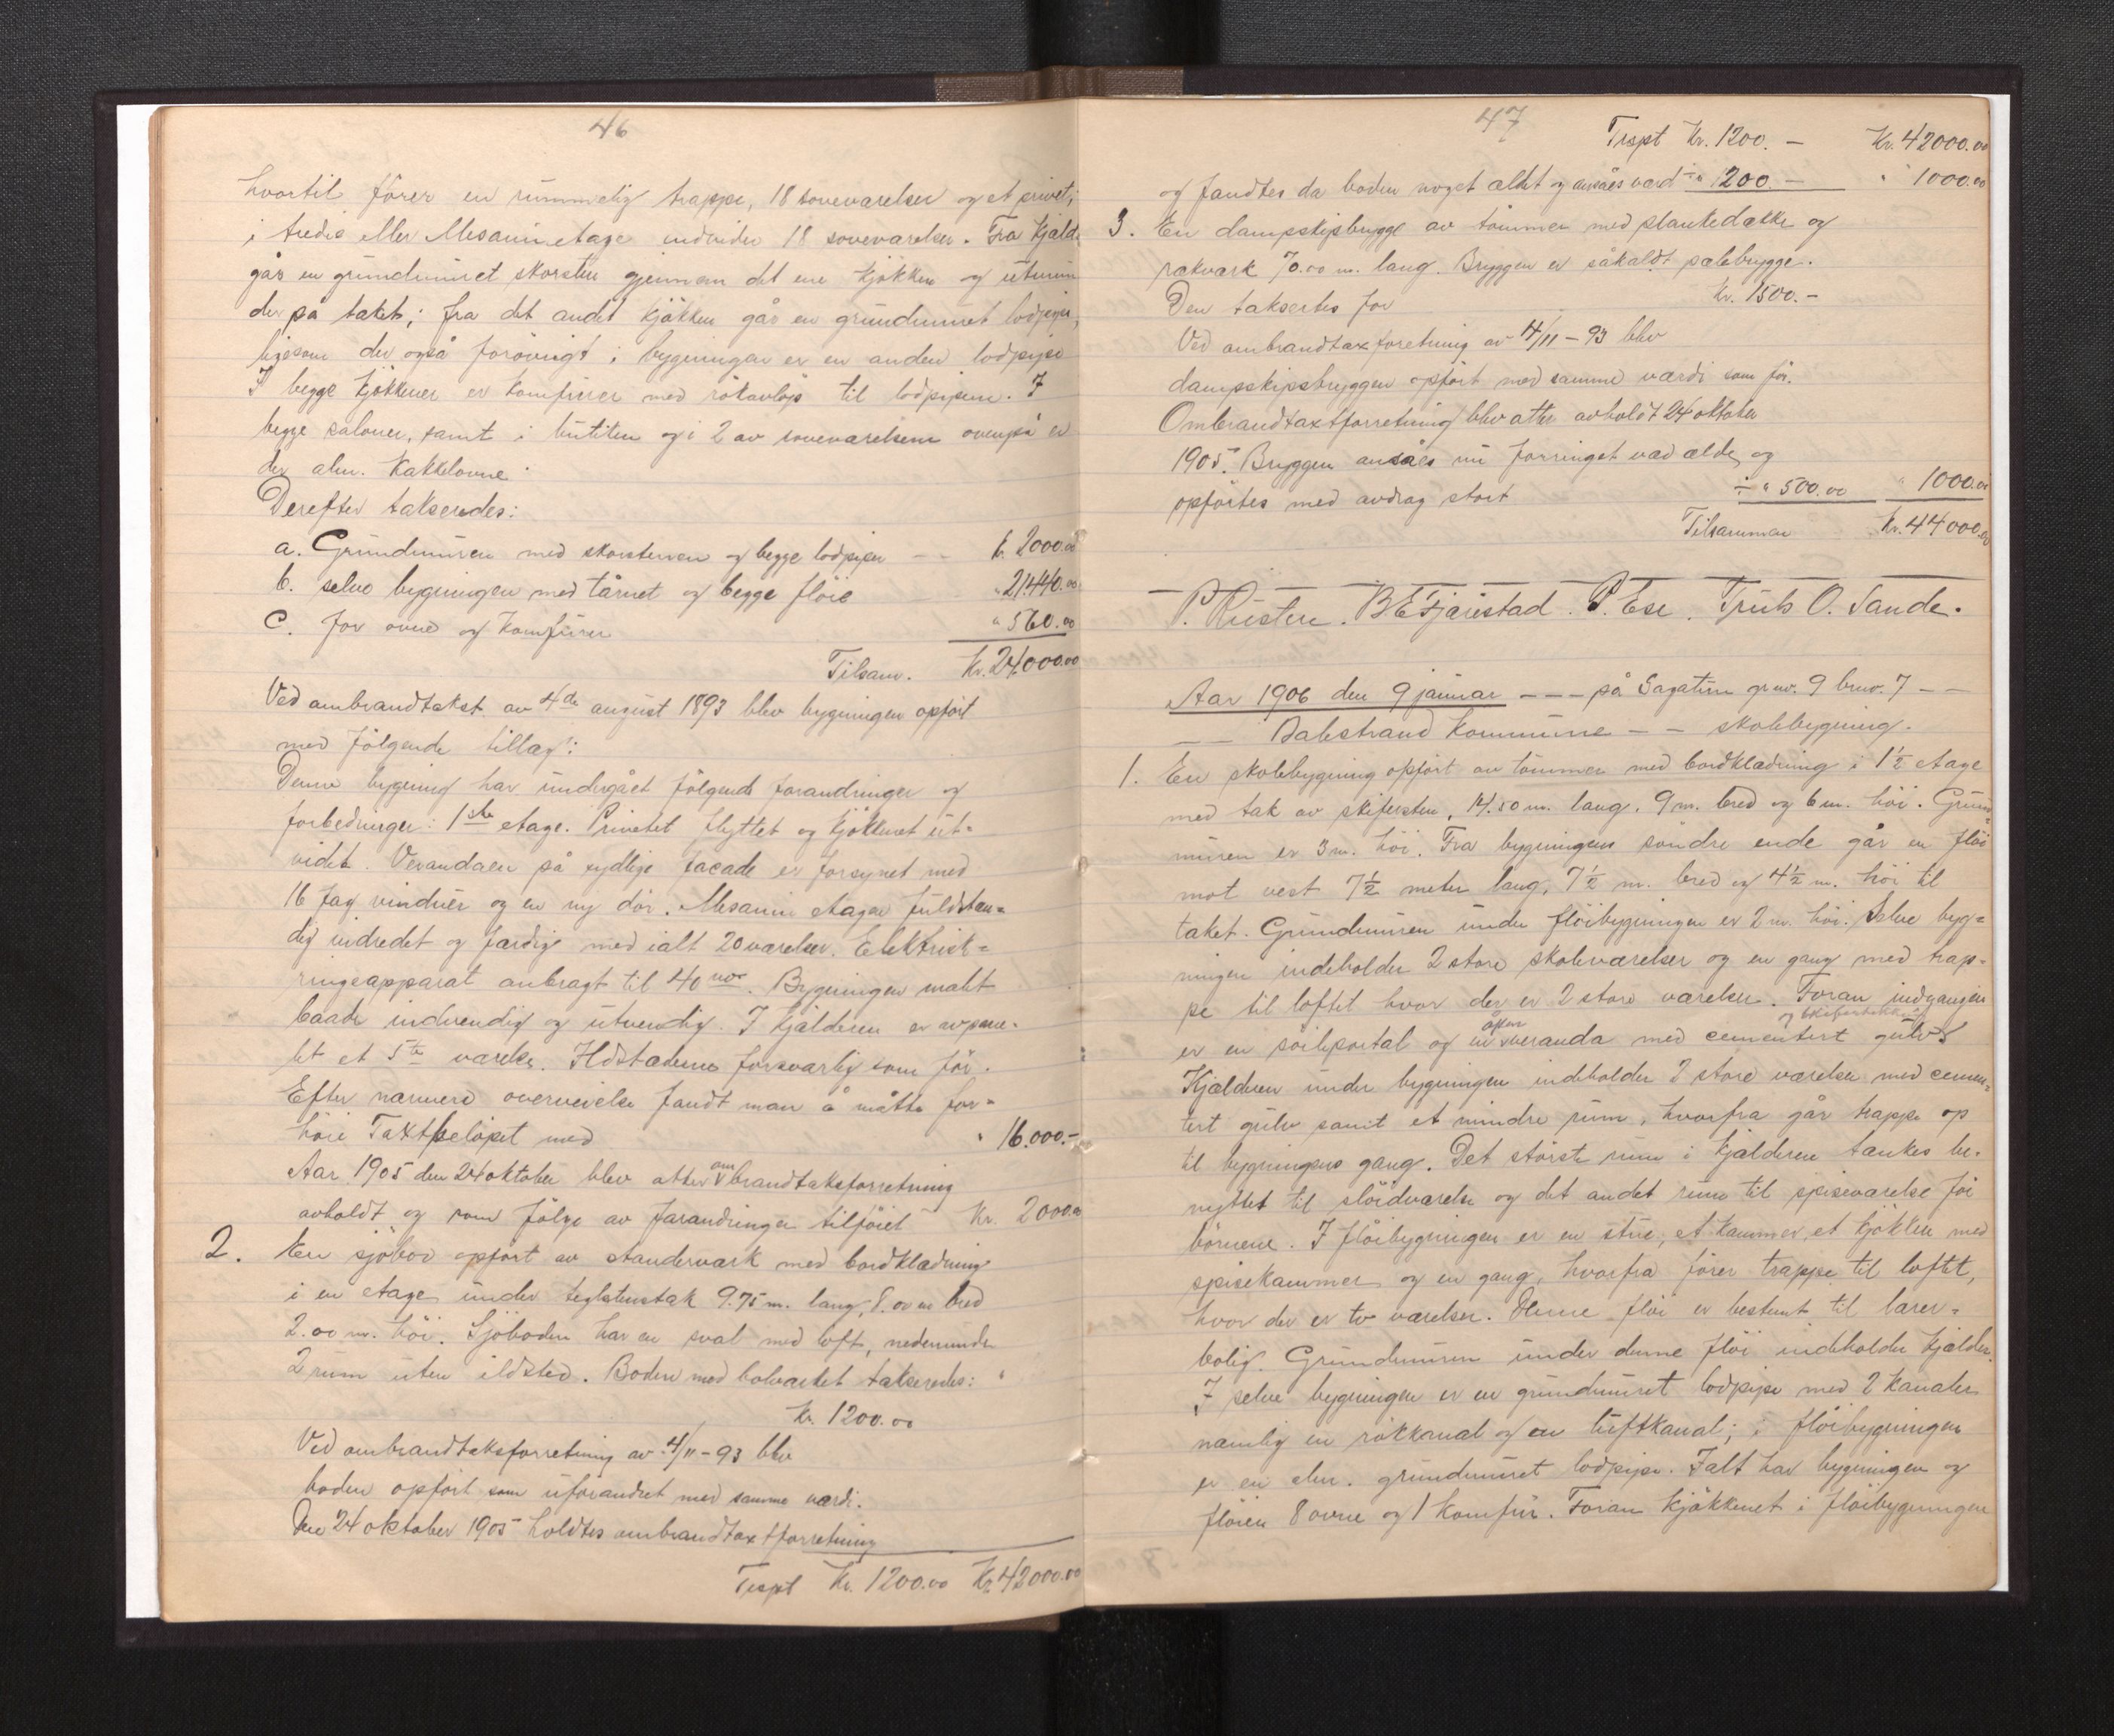 46
hvortil fører en rummelig trappe, 18 soveværelser og et privet;
i tredie eller Mesaninetage indvider 18 soveværelser. Fra Kjæld.
går en grundmuret skorsten gjennem det ene kjøkken og utmun
der på taket; fra det andet kjøkken går en grundmuret lodpipe,
ligesom der også forøvrigt i bygningen er en anden lodpipe
I begge kjøkkener er komfurer med røkavløp til lodpipene. I
begge saloner, samt i butiken og i 2 av soveværelsene ovenpå er
der alm. Kakkelovne.
Derefter takseredes:
a. Grundmuren med skorstenen og begge lodpiper — — kr. 2000.00
b. selve bygningen med tårnet og begge fløie " 21440.00
c. for ovne og Komfurer " 560.00
Tilsam. Kr. 24000.00
Ved ombrandtakst av 4de august 1893 blev bygningen opført
med følgende tillæg:
Denne bygning har undergået følgende forandringer og
forbedringer: 1ste etage. Privetet flyttet og kjøkkenet ut-
videt. Verandaen på sydlige facade er forsynet med
16 fag vinduer og en ny dør. Mesanin etagen fuldstæn-
dig indredet og færdig med ialt 20 værelser. Elektrisk-
ringeapparat anbragt til 40 no. Bygningen malt
baade indvendig og utvendig. I kjælderen er avpane-
let et 5te værelse. Ildstederne forsvarlig som før.
Efter nærmere overveielse fandt man å måtte for-
høie Taxtbeløpet med " 16.000.-
Aar 1905 den 24 oktober blev atter ombrandtaksforretning
avholdt og som følge av forandringer tilføiet Kr. 2000.00
2. En sjøbod opført av standerværk med bordklædning
i en etage under teglstenstak 9.75 m. lang, 8.00 m bred
2.00 m. høi. Sjøboden har en sval med loft, nedenunder
2 rum uten ildsted. Boden med bolværket takseredes:
Kr. 1200.00
Ved ombrandtaksforretning av 4/11-93 blev
boden opført som uforandret med samme værdi.
Den 24 oktober 1905 holdtes ombrandtaxtforretning
Trspt Kr. 1200.00 Kr. 42000.00
47
Trspt Kr. 1200. — Kr. 42000.00
og fandtes da boden noget ældet og ansåes værd ÷ " 200. — " 1000.00
3. En dampskipsbrygge av tømmer med plankedække og
rækværk 70.00 m. lang. Bryggen er såkaldt pælebrygge.
Den taksertes for Kr. 1500.—
Ved ombrandtaxforetning av 4/11-93 blev
dampskipsbryggen opført med samme værdi som før.
Ombrandtaxtforretning blev atter avholdt 24 oktober
1905. Bryggen ansåes nu forringet ved ælde, og
opførtes med avdrag stort ÷ " 500.00 " 1000.00
Tilsammen Kr. 44000.00
P. Risten. B E Fjærestad. P. Ese. Truls O. Sande.
Aar 1906 den 9 januar — — — på Sagatun grno. 9 brno. 7 — —
— — Balestrand Kommune — — skolebygning.
1. En skolebygning opført av tømmer med bordklædning i 1½ etage
med tak av skifersten, 14.50 m. lang, 9 m. bred og 6 m. høi. Grun-
muren er 3 m. høi. Fra bygningens søndre ende går en fløi
mot vest 7½ meter lang, 7½ m. bred og 4½ m. høi til
taket. Grundmuren under fløibygningen er 2 m. høi. Selve byg-
ningen indeholder 2 store skoleværelser og en gang med trap-
pe til loftet hvor der er 2 store værelser. Foran indgangen
er en søileportal og en åpen veranda med cementert gulv og skifertekking
Kjælderen under bygningen indeholder 2 store værelser med cemen-
tert gulv samt et mindre rum, hvorfra går trappe op
til bygningens gang. Det største rum i kjælderen tænkes be-
nyttet til sløidværelse og det andet rum til spiseværelse for
børnene. I fløibygningen er en stue, et kammer, et kjøkken med
spisekammer og en gang, hvorfra fører trappe til loftet,
hvor der er to værelser. Denne fløi er bestemt til lærer-
bolig. Grundmuren under denne fløi indeholder kjælder.
I selve bygningen er en grundmuret lodpipe med 2 kanaler
næmlig en røkkanal og en luftkanal; i fløibygningen
er en alm. grundmuret lodpipe. Ialt har bygningen og
fløien 8 ovne og 1 komfur. Foran kjøkkenet i fløibygningen